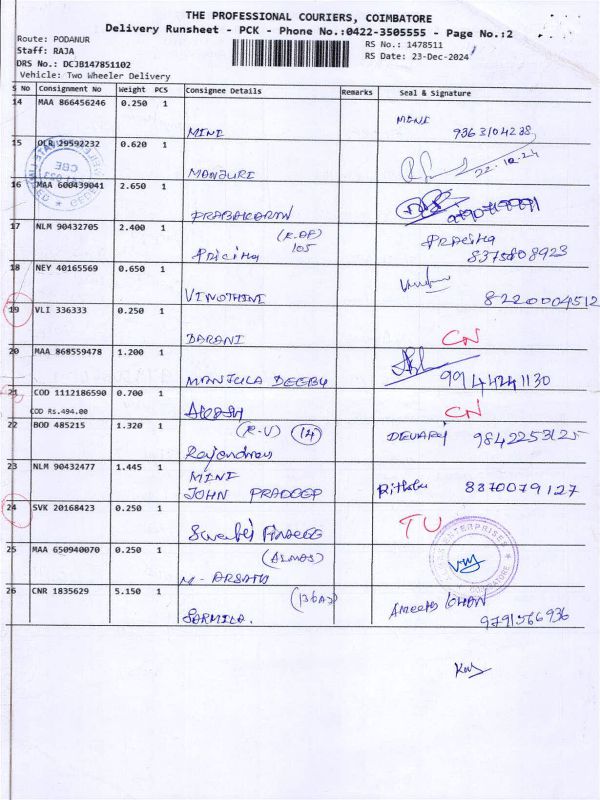 THE PROFESSIONAL COURIERS, COIMBATORE
Delivery Runsheet - PCK - Phone No.:0422-3505555 - Page No.:2
Route: PODANUR
RS No.: 1478511
Staff: RAJA
RS Date: 23-Dec-2024
DRS No.: DCJB147851102
Vehicle: Two Wheeler Delivery
S No Consignment No Weight PCS Consignee Details Remarks Seal & Signature
14 MAA 866456246 0.250 1
MINI MINI 9363104238
15 OLR 29592232 0.620 1
MANJURI 22.12.24
16 MAA 600439041 2.650 1
PRABAKARAN
17 NLM 90432705 2.400 1
105
8375808923
18 NEY 40165569 0.650 1
VINOTHINI 8220004512
19 VLI 336333 0.250 1
BARANI CN
20 MAA 868559478 1.200 1
MANJULA 9944241130
21 COD 1112186590 0.700 1
COD Rs.494.00
CN
22 BOD 485215 1.320 1
(K-V) (14)
9842253125
23 NLM 90432477 1.445 1
MINI
JOHN PRADEEP 8370079127
24 SVK 20168423 0.250 1
TU
25 MAA 650940070 0.250 1
26 CNR 1835629 5.150 1
SARMILA.
9791566936